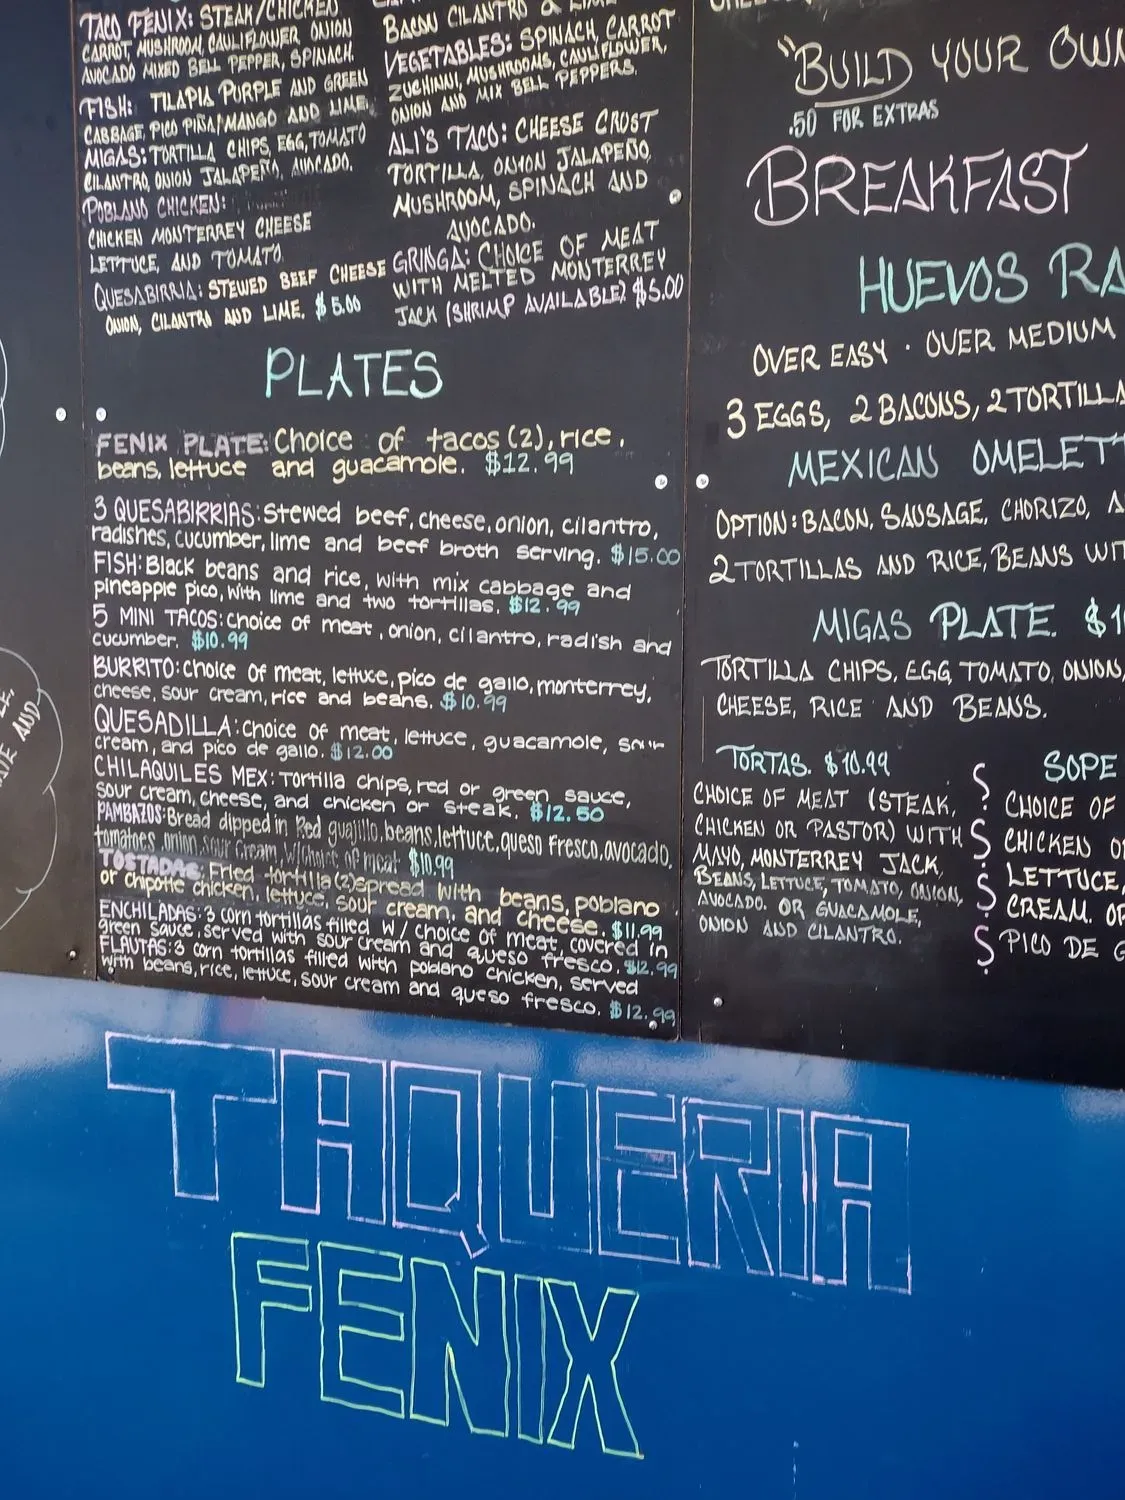 TACO FENIX: STEAK/CHICKEN
CARROT, MUSHROOM, CAULIFLOWER, ONION
AVOCADO MIXED BELL PEPPER, SPINACH.
FISH: TILAPIA PURPLE AND GREEN
CABBAGE, PICO PIÑA/MANGO AND LIME.
MIGAS: TORTILLA CHIPS, EGG, TOMATO
CILANTRO, ONION JALAPEÑO, AVOCADO.
POBLANO CHICKEN:
CHICKEN MONTERREY CHEESE
LETTUCE, AND TOMATO.
QUESABIRRIA: STEWED BEEF CHEESE
ONION, CILANTRO AND LIME. $5.00
BACON CILANTRO & LIME
VEGETABLES: SPINACH, CARROT
ZUCHINNI, MUSHROOMS, CAULIFLOWER,
ONION AND MIX BELL PEPPERS.
ALI'S TACO: CHEESE CRUST
TORTILLA, ONION JALAPEÑO,
MUSHROOM, SPINACH AND
AVOCADO.
GRINGA: CHOICE OF MEAT
WITH MELTED MONTERREY
JACK (SHRIMP AVAILABLE) $5.00
PLATES
FENIX PLATE: Choice of tacos (2), rice,
beans, lettuce and guacamole. $12.99
3 QUESABIRRIAS: Stewed beef, cheese, onion, cilantro,
radishes, cucumber, lime and beef broth serving. $15.00
FISH: Black beans and rice, with mix cabbage and
pineapple pico, with lime and two tortillas. $12.99
5 MINI TACOS: choice of meat, onion, cilantro, radish and
cucumber. $10.99
BURRITO: choice of meat, lettuce, pico de gallo, monterrey,
cheese, sour cream, rice and beans. $10.99
QUESADILLA: Choice of meat, lettuce, guacamole, sour
cream, and pico de gallo. $12.00
CHILAQUILES MEX: Tortilla chips, red or green sauce,
sour cream, cheese, and chicken or steak. $12.50
PAMBAZOS: Bread dipped in Red guajillo, beans, lettuce, queso fresco, avocado,
tomatoes, onion, sour cream, w/choice of meat $10.99
TOSTADAS: Fried tortilla (2) spread with beans, poblano
or chipotle chicken, lettuce, sour cream, and cheese. $11.99
ENCHILADAS: 3 corn tortillas filled w/ choice of meat, covered in
green sauce, served with sour cream and queso fresco. $12.99
FLAUTAS: 3 corn tortillas filled with poblano chicken, served
with beans, rice, lettuce, sour cream and queso fresco. $12.99
"BUILD YOUR OWN
.50 FOR EXTRAS
BREAKFAST
HUEVOS RA
OVER EASY · OVER MEDIUM
3 EGGS, 2 BACONS, 2 TORTILLA
MEXICAN OMELETT
OPTION: BACON, SAUSAGE, CHORIZO, A
2 TORTILLAS AND RICE, BEANS WIT
MIGAS PLATE. $1
TORTILLA CHIPS, EGG, TOMATO, ONION,
CHEESE, RICE AND BEANS.
TORTAS. $10.99
CHOICE OF MEAT (STEAK,
CHICKEN OR PASTOR) WITH
MAYO, MONTERREY JACK,
BEANS, LETTUCE, TOMATO, ONION,
AVOCADO. OR GUACAMOLE,
ONION AND CILANTRO.
SOPE
CHOICE OF
CHICKEN O
LETTUCE,
CREAM. OR
PICO DE G
TAQUERIA
FENIX